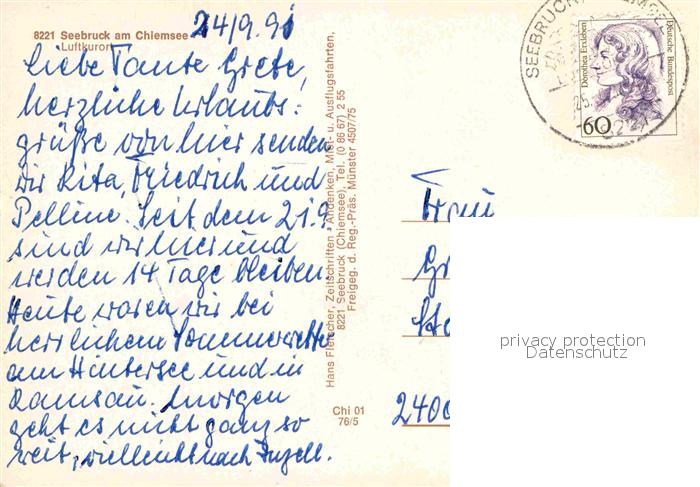 8221 Seebruck am Chiemsee
Luftkurort
24/9.91
Liebe Tante Grete,
herzliche Urlaubs=
grüße von hier senden
wir Rita, Friedrich und
Pelline. Seit dem 21.9.
sind wir hier und
werden 14 Tage bleiben.
Heute waren wir bei
herrlichem Sommerwetter
am Hintersee und in
Ramsau. Morgen
geht es nicht ganz so
weit, vielleicht nach Inzell.
Hans Fleischer, Zeitschriften - Andenken, Miet- u. Ausflugsfahrten,
8221 Seebruck (Chiemsee), Tel. (0 86 67) 2 55
Freigeg. d. Reg.-Präs. Münster 4507/75
Chi 01
76/5
SEEBRUCK
8221
Dorothea Erxleben
Deutsche Bundespost
60
Frau
Gr
2400
privacy protection
Datenschutz